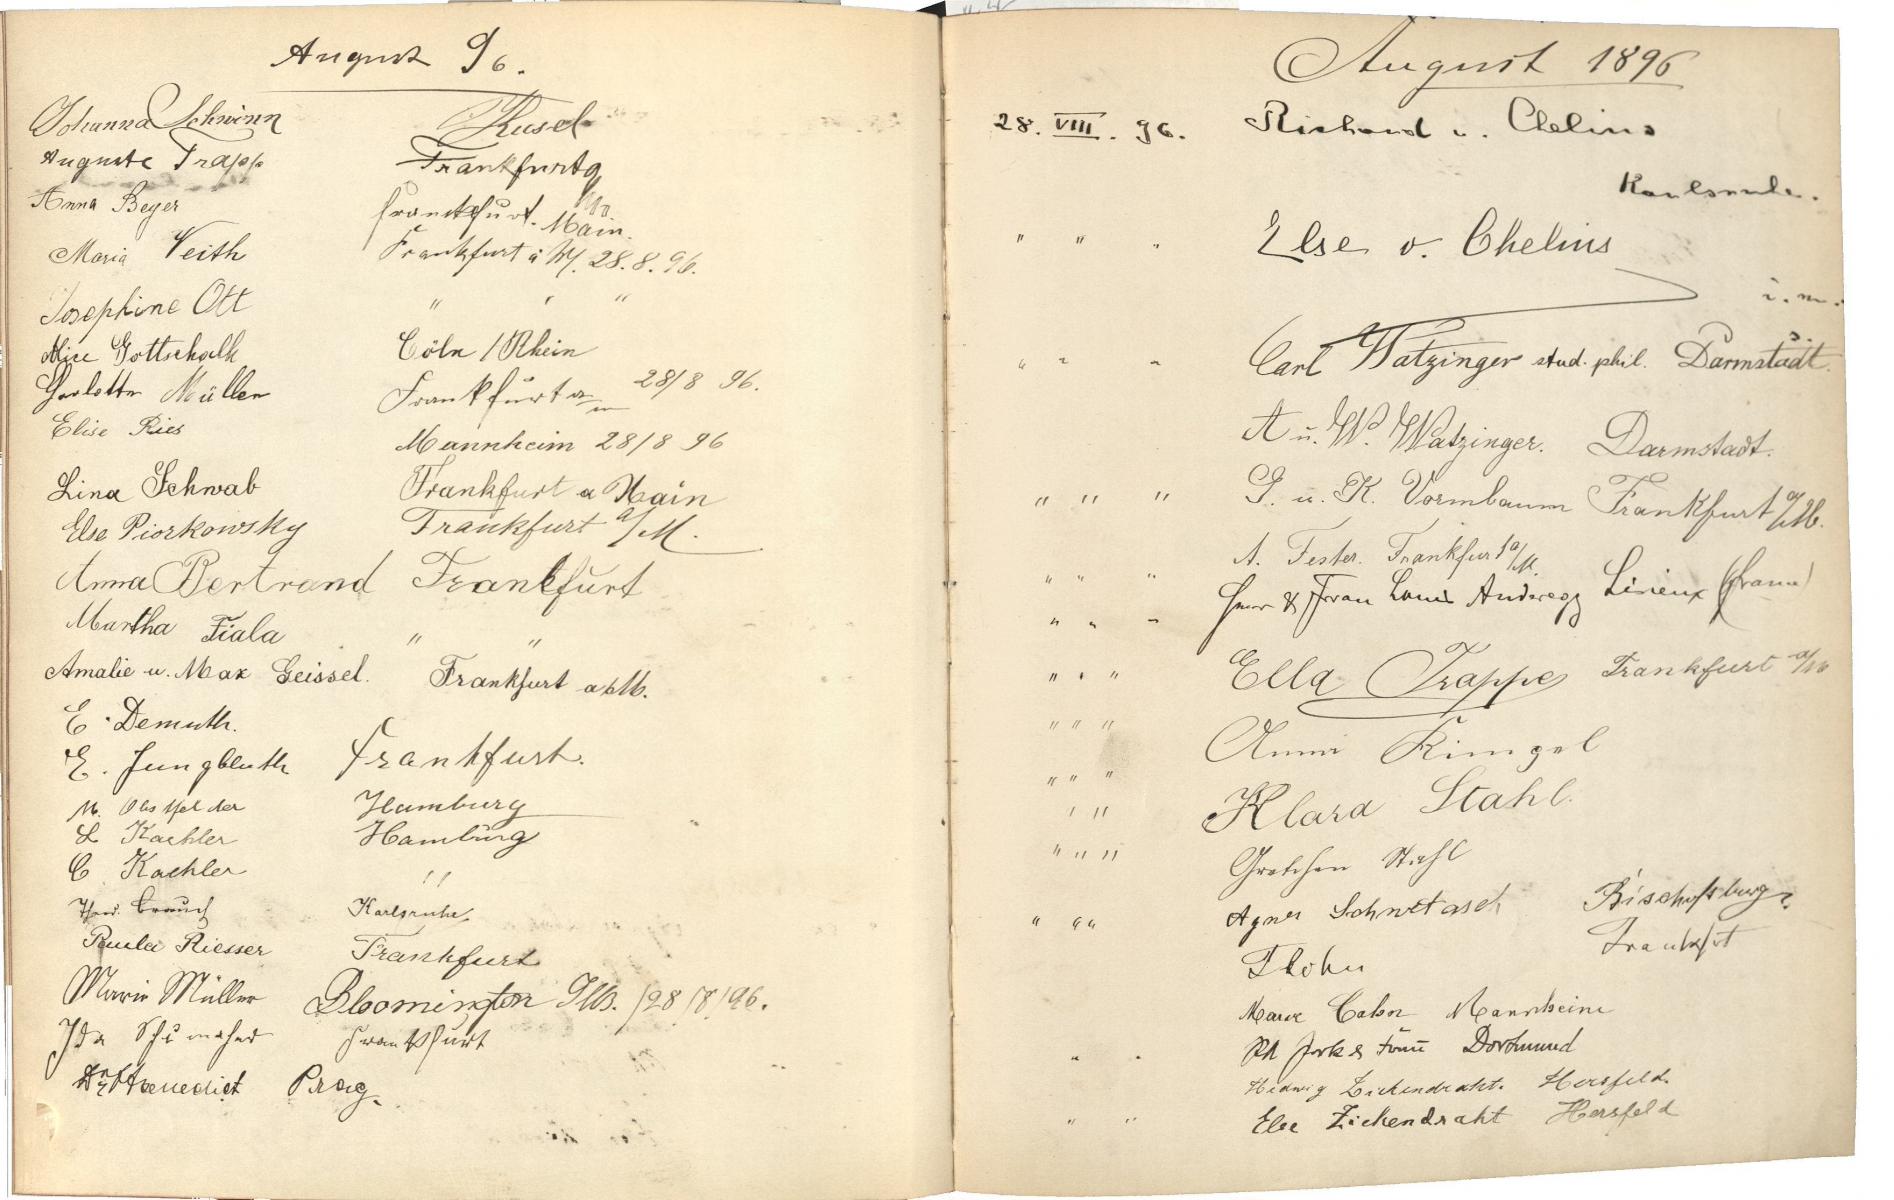 August 96.
Johanna Schwinn Kusel
Auguste Trapp Frankfurt
Anna Beyer Frankfurt. Main.
Maria Veith Frankfurt a M. 28.8.96.
Josephine Ott " " "
Alice Gottschalk Cöln / Rhein
Müller Frankfurt a m 28/8 96.
Elise Ries Mannheim 28/8 96
Lina Schwab Frankfurt a Main
Else Piorkowsky Frankfurt a/M.
Anna Bertrand Frankfurt
Martha Fiala " "
Amalie u. Max Geissel. Frankfurt a M.
E. Demuth.
E. Jungbluth Frankfurt.
M. Hamburg
L Kaehler Hamburg
C Kaehler " "
Theod. Karlsruhe
Paula Riesser Frankfurt
Marie Müller Bloomington Ills. /28/8/96.
Ida Schumacher Frankfurt
Benedict Prag.
August 1896
28. VIII. 96. Richard v. Chelius
Karlsruhe.
" " " Else v. Chelius
" " " Carl Watzinger stud. phil. Darmstadt.
A u. W. Watzinger. Darmstadt.
" " " G. u. K. Vormbaum Frankfurt a/M.
A. Fester. Frankfurt a/M.
" " " Herr & Frau Louis Lisieux
" " "
" " " Ella Trappe Frankfurt a/M
" " " Anni Rimpel
" " " Klara Stahl.
" " "
" " " Gretchen Stahl
" " " Agnes Bischofsburg
Frankfurt
Marie Mannheim
" " & Frau Dortmund
Hedwig Zickendraht. Hersfeld.
" " Else Zickendraht Hersfeld